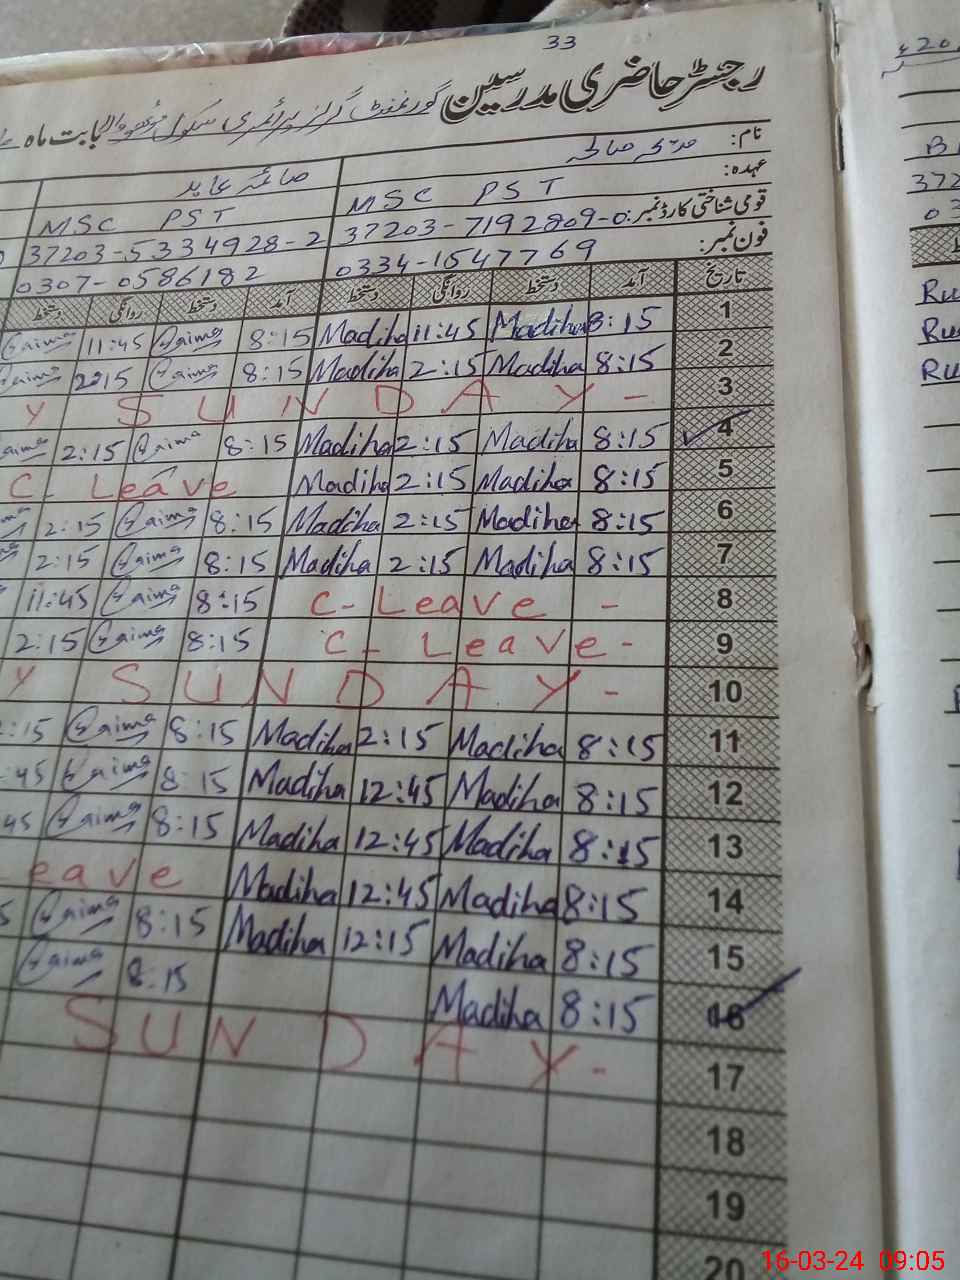 33
رجسٹر حاضری مدرسین گورنمنٹ گرلز پرائمری سکول بابت ماہ
نام: مدیحہ صالحہ صائمہ عابد
عہدہ: MSC PST MSC PST
قومی شناختی کارڈ نمبر: 37203-7192809-0 37203-5334928-2
فون نمبر: 0334-1547769 0307-0586182
تاریخ آمد دستخط روانگی دستخط آمد دستخط روانگی دستخط
1 8:15 Madiha 11:45 Madiha 8:15 Saima 11:45 Saima
2 8:15 Madiha 2:15 Madiha 8:15 Saima 2:15 Saima
3 SUNDAY -
4 8:15 Madiha 2:15 Madiha 8:15 Saima 2:15
5 8:15 Madiha 2:15 Madiha C- Leave
6 8:15 Madiha 2:15 Madiha 8:15 Saima 2:15
7 8:15 Madiha 2:15 Madiha 8:15 Saima 2:15
8 C- Leave - 8:15 Saima 11:45
9 C- Leave - 8:15 Saima 2:15
10 SUNDAY -
11 8:15 Madiha 2:15 Madiha 8:15 Saima 2:15
12 8:15 Madiha 12:45 Madiha 8:15 Saima :45
13 8:15 Madiha 12:45 Madiha 8:15 Saima 45
14 8:15 Madiha 12:45 Madiha eave
15 8:15 Madiha 12:15 Madiha 8:15 Saima 5
16 8:15 Madiha 8:15 Saima
17 SUNDAY -
18
19
20
Ru
Ru
Ru
16-03-24 09:05